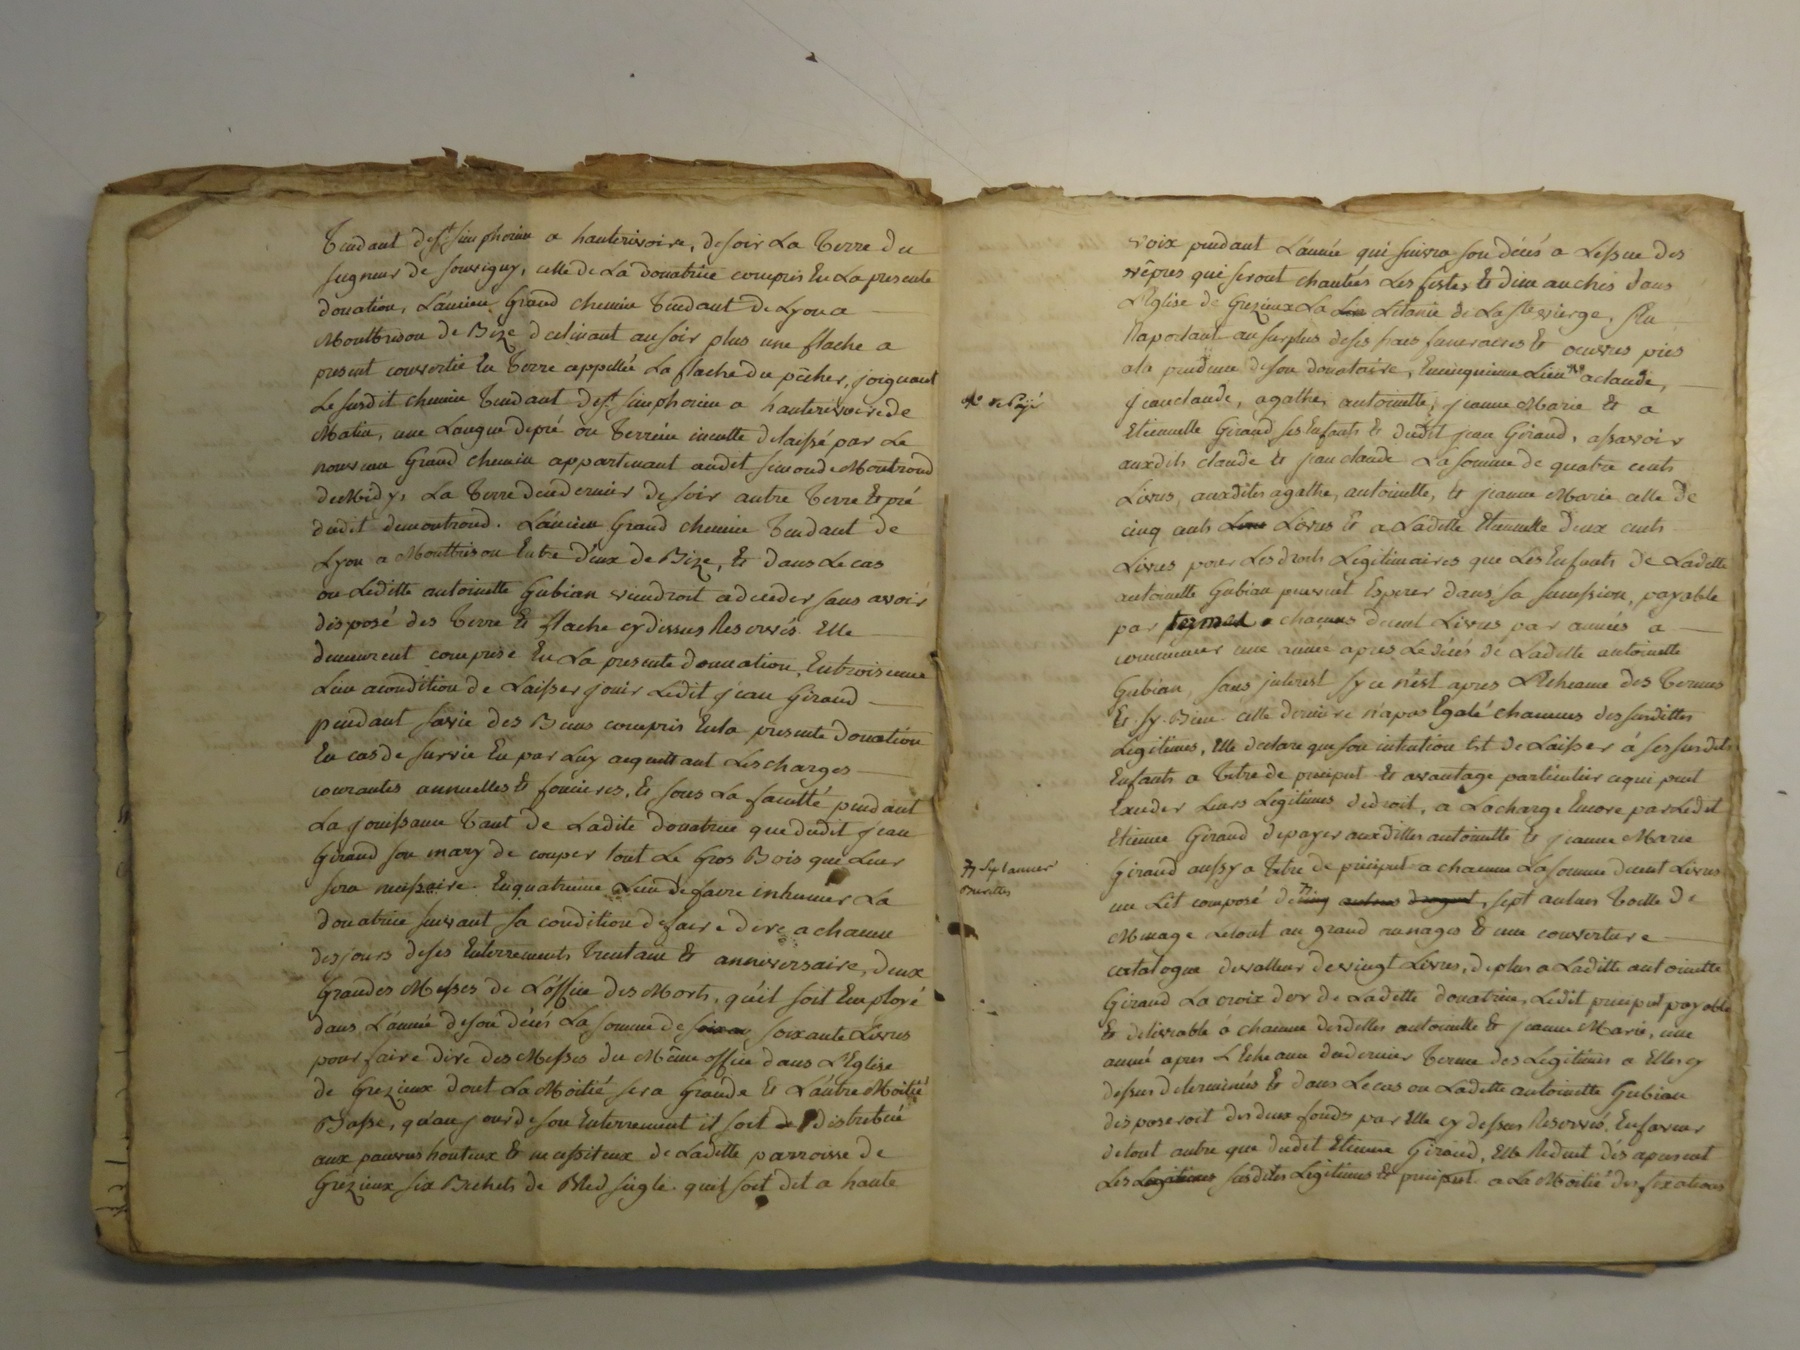 Tendant de St simphorien a hauterivoire, de soir La Terre du
seigneur de souvigny, celle de La donatrice compris En La presente
donation, L'ancien Grand chemin Tendant de Lyon a
Montbrison de Bize declinant au soir plus une flache a
present convertie En Terre appellée La flache du pêcher, joignant
Le susdit chemin Tendant de St simphorien a hauterivoire de
Matin, une Langue de pré ou Terrein inculte delaissé par Le
nouveau Grand chemin appartenant audit simon de Montrond
de Midy, La Terre du dernier de soir autre Terre Et pré
dudit demontrond. L'ancien Grand chemin Tendant de
Lyon a Montbrison Entre deux de Bize, Et dans Le cas
ou Leditte antoinette Gubian viendroit a deceder sans avoir
disposé des Terre Et flache cy dessus Reservés. Elle
demeurent comprise En La presente donnation, En troisieme
Lieu a condition de Laisser jouir Ledit jean Giraud
pendant sa vie des Biens compris En la presente donation
En cas de survie En par Luy acquittant Les charges
courantes annuelles Et foncieres, Et sous La faculté pendant
La jouissance Tant de Ladite donatrice que dudit jean
Giraud son mary de couper tout Le Gros Bois que Leur
sera necessaire. En quatrieme Lieu de faire inhumer La
donatrice suivant sa condition de faire dire a chacun
des jours de ses Enterrements Trentain Et anniversaire, deux
Grandes Messes de L'office des Morts, qu'il soit Employé
dans L'année de son décés La somme de soixan soixante Livres
pour faire dire des Messes du Même office dans L'Eglise
de Grezieux dont La Moitié sera Grande Et L'autre Moitié
Basse, qu'au jour de son Enterrement il soit distribué
aux pauvres honteux Et necessiteux de Ladette parroisse de
Grézieux six Bichets de Bled siegle. quil soit dit a haute
voix pendant L'année qui suivra son décés a L'essue des
vêpres qui seront chantées Les festes Et dimanches dans
L'Eglise de Grezieux La Litanie de La Ste vierge, s'En
Raportant au surplus de ses frais funeraires Et oeuvres pies
a la prudence de son donataire, En cinquieme Lieu a claude,
jean claude, agathe, antoinette, jeanne Marie Et a
Etiennette Giraud ses Enfants Et dudit jean Giraud, assavoir
auxdits claude Et jean claude La somme de quatre cents
Livres, auxdites agathe, antoinette, Et jeanne Marie celle de
cinq cents Livres Et a Ladette Etiennette deux cents
Livres pour Les droits Legitimaires que Les Enfants de Ladette
antoinette Gubian peuvent Esperer dans sa succession, payable
par termes chacuns de cent Livres par années a
commencer une année apres Le décés de Ladette antoinette
Gubian, sans interest sy ce n'est apres L'Echeance des Termes
Et sy Bien celle derniere n'a pas Egalé chacunes des susdittes
Legitimes, Elle declare que son intention Est de Laisser à ses susdits
Enfants a Titre de preciput Et avantage particulier ce qui peut
Exceder Leurs Legitimes de droit, a La charge Encore par Ledit
Etienne Giraud de payer auxdittes antoinette Et jeanne Marie
Giraud aussy a Titre de preciput a chacune La somme de cent Livres
un Lit composé de cinq aulnes dragat, sept aulnes Toille de
Menage Le tout au grand aunages Et une couverture
catalogne de valleur de vingt Livres, de plus a Laditte antoinette
Giraud La croix d'or de Ladette donatrice, Ledit preciput payable
Et delivrable à chacune desdittes antoinette Et jeanne Marie, une
année apres L'Echeance du dernier Terme des Legitimes a Elles cy
dessus determinés Et dans Le cas ou Ladette antoinette Gubian
disposeroit des deux fonds par Elle cy dessus Reservés, En faveur
de tout autre que dudit Etienne Giraud, Elle Reduit dés apresent
Les Legitimes susdites Legitimes Et preciput a La Moitié des fixations